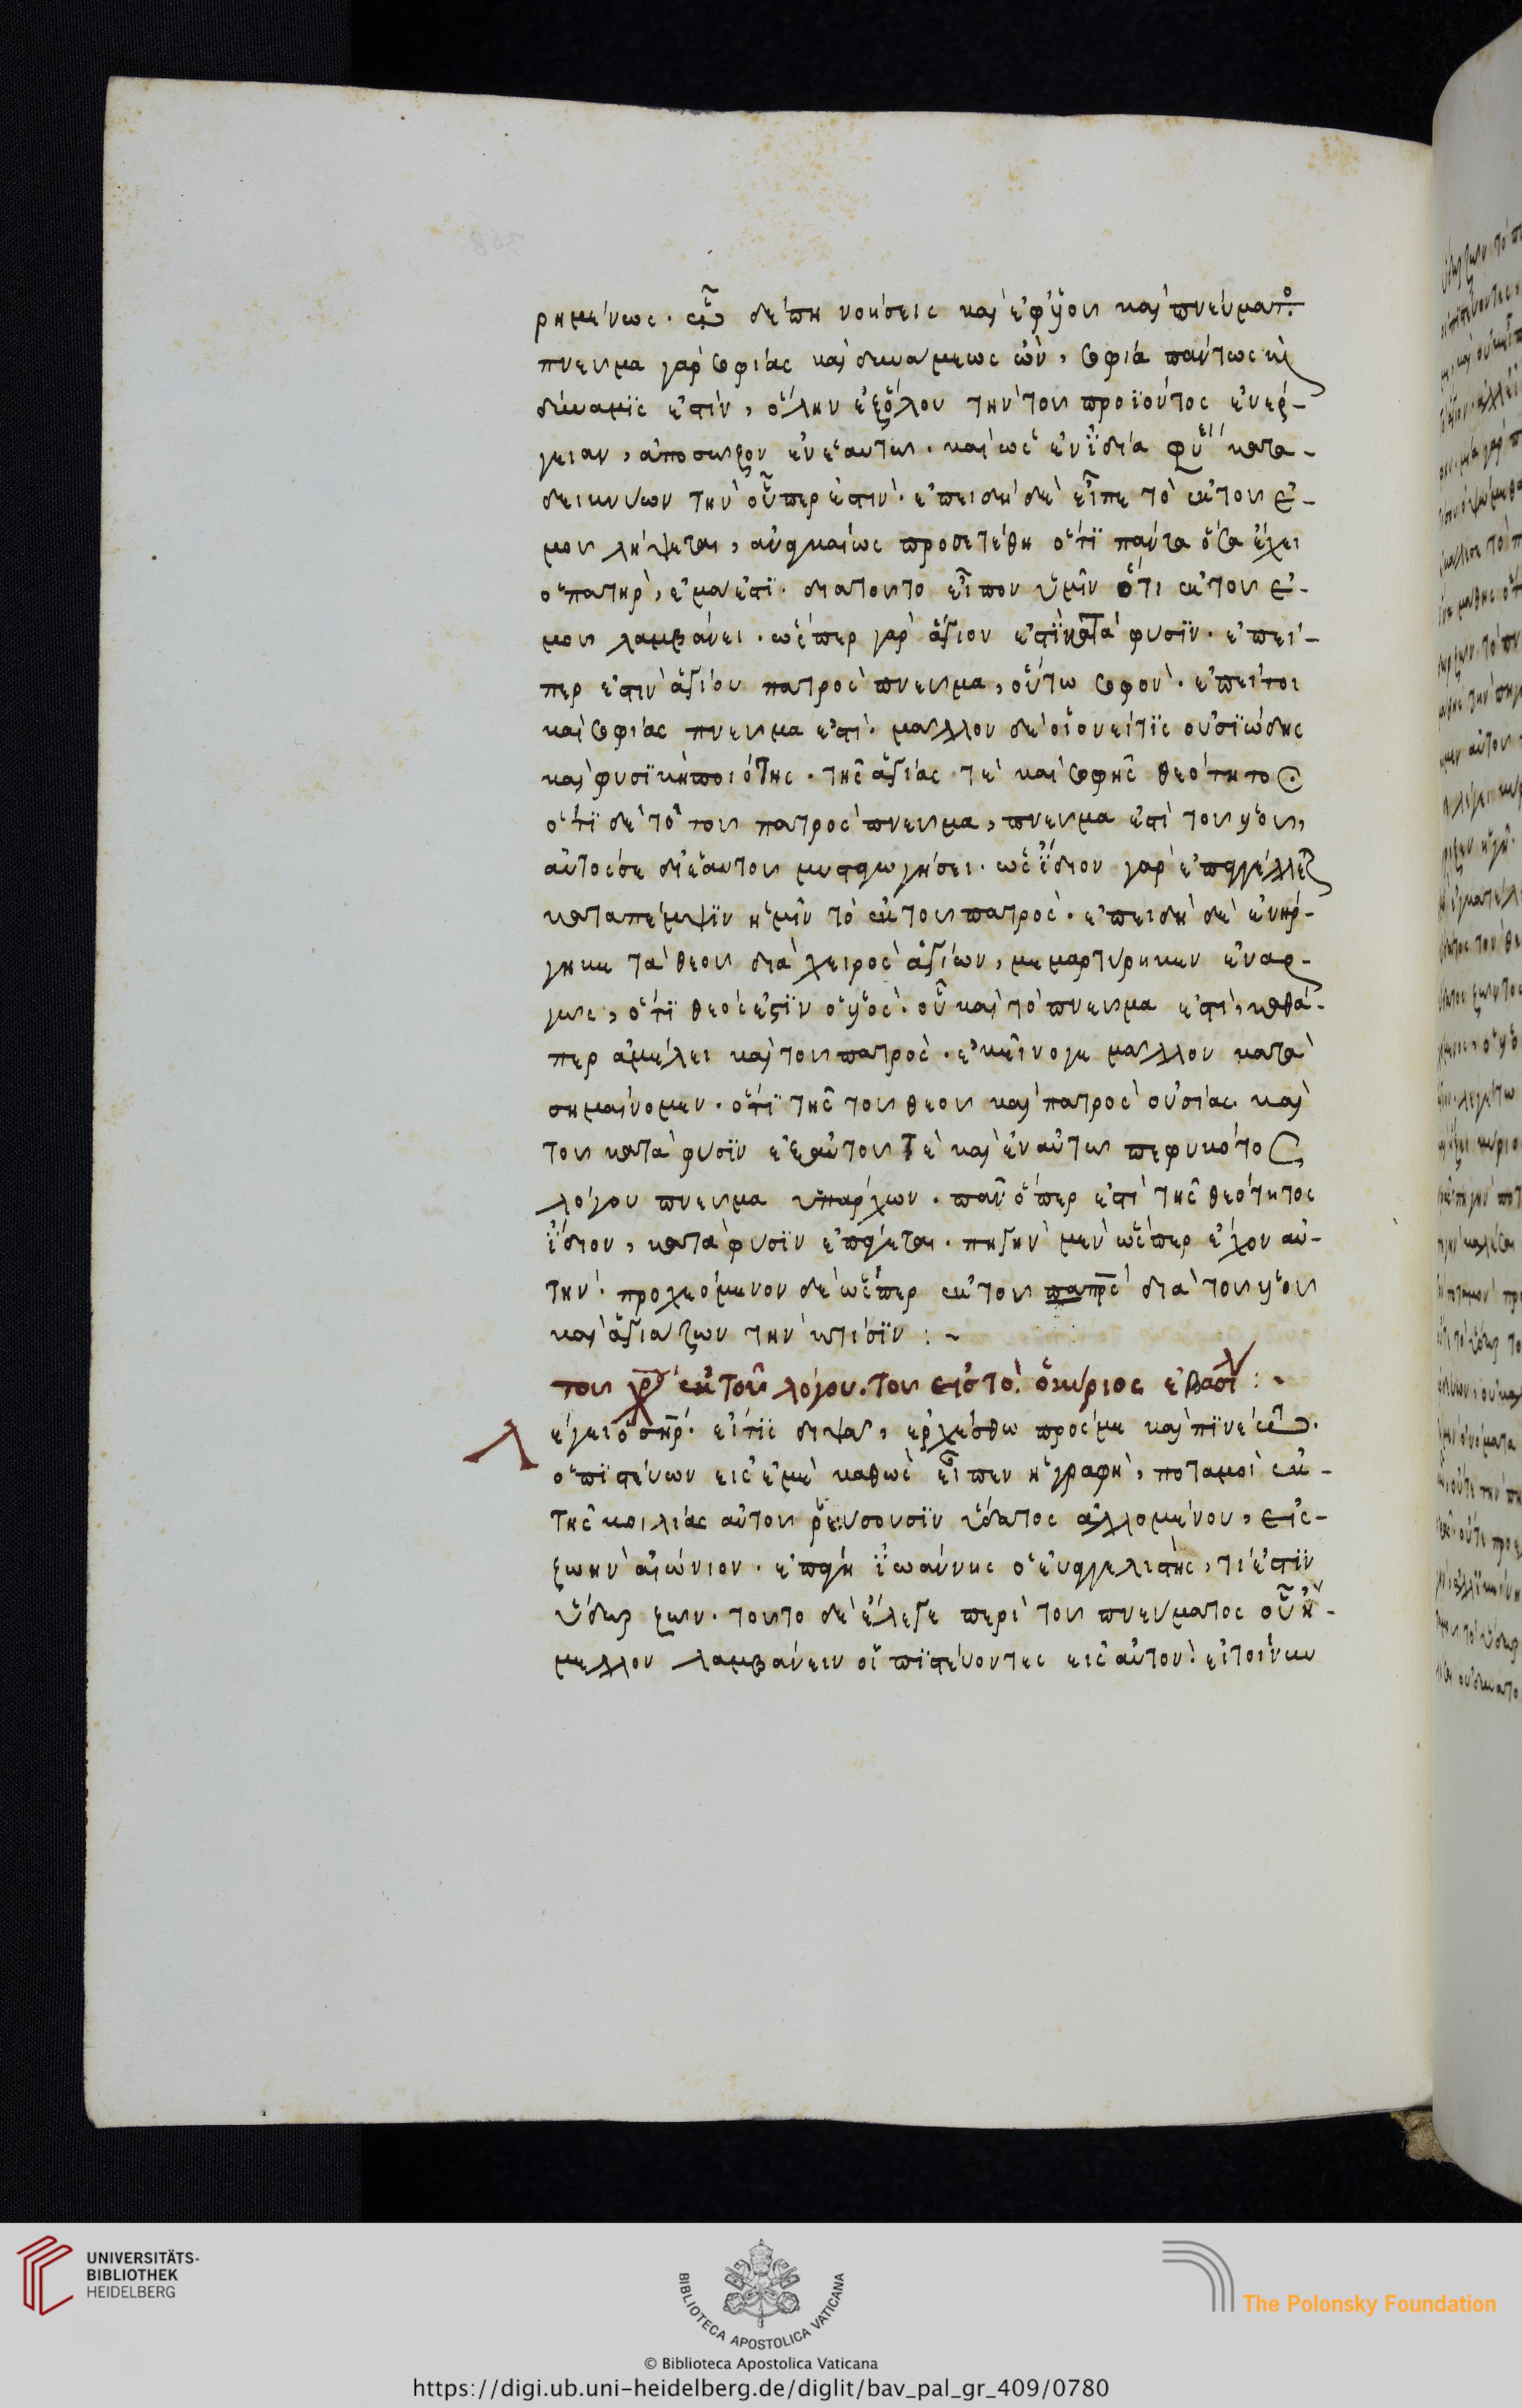 ρημένως. οὕτω δέ πη νοήσεις καὶ ἐφ' υἱοῦ καὶ πνεύματος.
πνεῦμα γὰρ σοφίας καὶ δυνάμεως ὤν, σοφία πάντως καὶ
δύναμίς ἐστιν, ὅλην ἐξ ὅλου τὴν τοῦ προϊόντος ἐνέρ-
γειαν, ἀποσῶζον ἐν ἑαυτῷ. καὶ ὡς ἐν ἰδία φύσει κατα-
δεικνύων τὴν οὗπερ ἐστίν. ἐπειδὴ δὲ εἶπε τὸ ἐκ τοῦ ἐ-
μοῦ λήψεται, ἀναγκαίως προσετέθη ὅτι πάντα ὅσα ἔχει
ὁ πατήρ, ἐμά ἐστι. διατοῦτο εἶπον ὑμῖν ὅτι ἐκ τοῦ ἐ-
μοῦ λαμβάνει. ὥσπερ γὰρ ἅγιον ἐστὶ κατὰ φύσιν. ἐπεί-
περ ἐστὶν ἁγίου πατρὸς πνεῦμα, οὕτω σοφόν. ἐπείτοι
καὶ σοφίας πνεῦμα ἐστί. μᾶλλον δὲ οἱονεί τις οὐσιώδης
καὶ φυσικὴ ποιότης. τῆς ἁγίας τὲ καὶ σοφῆς θεότητος
ὅτι δὲ τὸ τοῦ πατρὸς πνεῦμα, πνεῦμα ἐστὶ τοῦ υἱοῦ,
αὐτός σε δι' ἑαυτοῦ μυσταγωγήσει. ὡς ἴδιον γὰρ ἐπαγγέλλεται
καταπέμψιν ἡμῖν τὸ ἐκ τοῦ πατρός. ἐπειδὴ δὲ ἐνήρ-
γηκε τὰ θεοῦ διὰ χειρὸς ἁγίων, μεμαρτύρηκεν ἐναρ-
γῶς, ὅτι θεός ἐστιν ὁ υἱός. οὗ καὶ τὸ πνεῦμα ἐστί, καθά-
περ ἀμέλει καὶ τοῦ πατρός. ἐκεῖνό γε μᾶλλον κατα
σημαίνομεν. ὅτι τῆς τοῦ θεοῦ καὶ πατρὸς οὐσίας καὶ
τοῦ κατὰ φύσιν ἐξ αὐτοῦ τὲ καὶ ἐν αὐτῷ πεφυκότος
λόγου πνεῦμα ὑπάρχων. πᾶν ὅπερ ἐστὶ τῆς θεότητος
ἴδιον, κατὰ φύσιν ἐπάγεται. πηγὴν μὲν ὥσπερ ἔχον αὐ-
τήν. προχεόμενον δὲ ὥσπερ ἐκ τοῦ πατρὸς διὰ τοῦ υἱοῦ
καὶ ἁγιάζων τὴν κτίσιν : -
του χρ ἐκ τοῦ λόγου. τοῦ εἰς τό. ὁ κύριος ἐβασιλ : -
Λέγει ὁ σηρ. εἴ τις διψᾶ, ἐρχέσθω πρός με καὶ πινέτω.
ὁ πιστεύων εἰς ἐμὲ καθὼς εἶπεν ἡ γραφή, ποταμοὶ ἐκ -
τῆς κοιλίας αὐτοῦ ῥεύσουσιν ὕδατος ἁλλομένου, εἰς -
ζωὴν αἰώνιον. ἐπάγη ἰωάννης ὁ εὐαγγελιστής, τί ἐστιν
ὕδωρ ζῶν. τοῦτο δὲ ἔλεγε περὶ τοῦ πνεύματος οὗ ἤ -
μελλον λαμβάνειν οἱ πιστεύοντες εἰς αὐτόν. εἰ τοίνυν
UNIVERSITÄTS-
BIBLIOTHEK
HEIDELBERG
BIBLIOTECA APOSTOLICA VATICANA
© Biblioteca Apostolica Vaticana
The Polonsky Foundation
https://digi.ub.uni-heidelberg.de/diglit/bav_pal_gr_409/0780